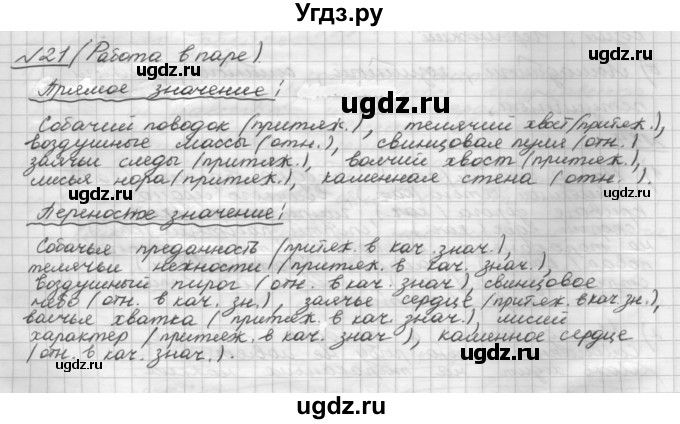 Угдз.ру
№21 (Работа в паре)
Прямое значение:
Собачий поводок (притяж.), телячий хвост (притяж.),
воздушные массы (отн.), свинцовая пуля (отн.)
заячьи следы (притяж.), волчий хвост (притяж.),
лисья нора (притяж.), каменная стена (отн.).
Переносное значение:
Собачья преданность (притяж. в кач. знач.),
телячьи нежности (притяж. в кач. знач.),
воздушный пирог (отн. в кач. знач.), свинцовое
небо (отн. в кач. зн.), заячье сердце (притяж. в кач. зн.),
волчья хватка (притяж. в кач. знач.), лисий
характер (притяж. в кач. знач.), каменное сердце
(отн. в кач. знач.).
ugdz.ru
ugdz.ru
ugdz.ru
ugdz.ru
ugdz.ru
ugdz.ru
ugdz.ru
ugdz.ru
ugdz.ru
ugdz.ru
ugdz.ru